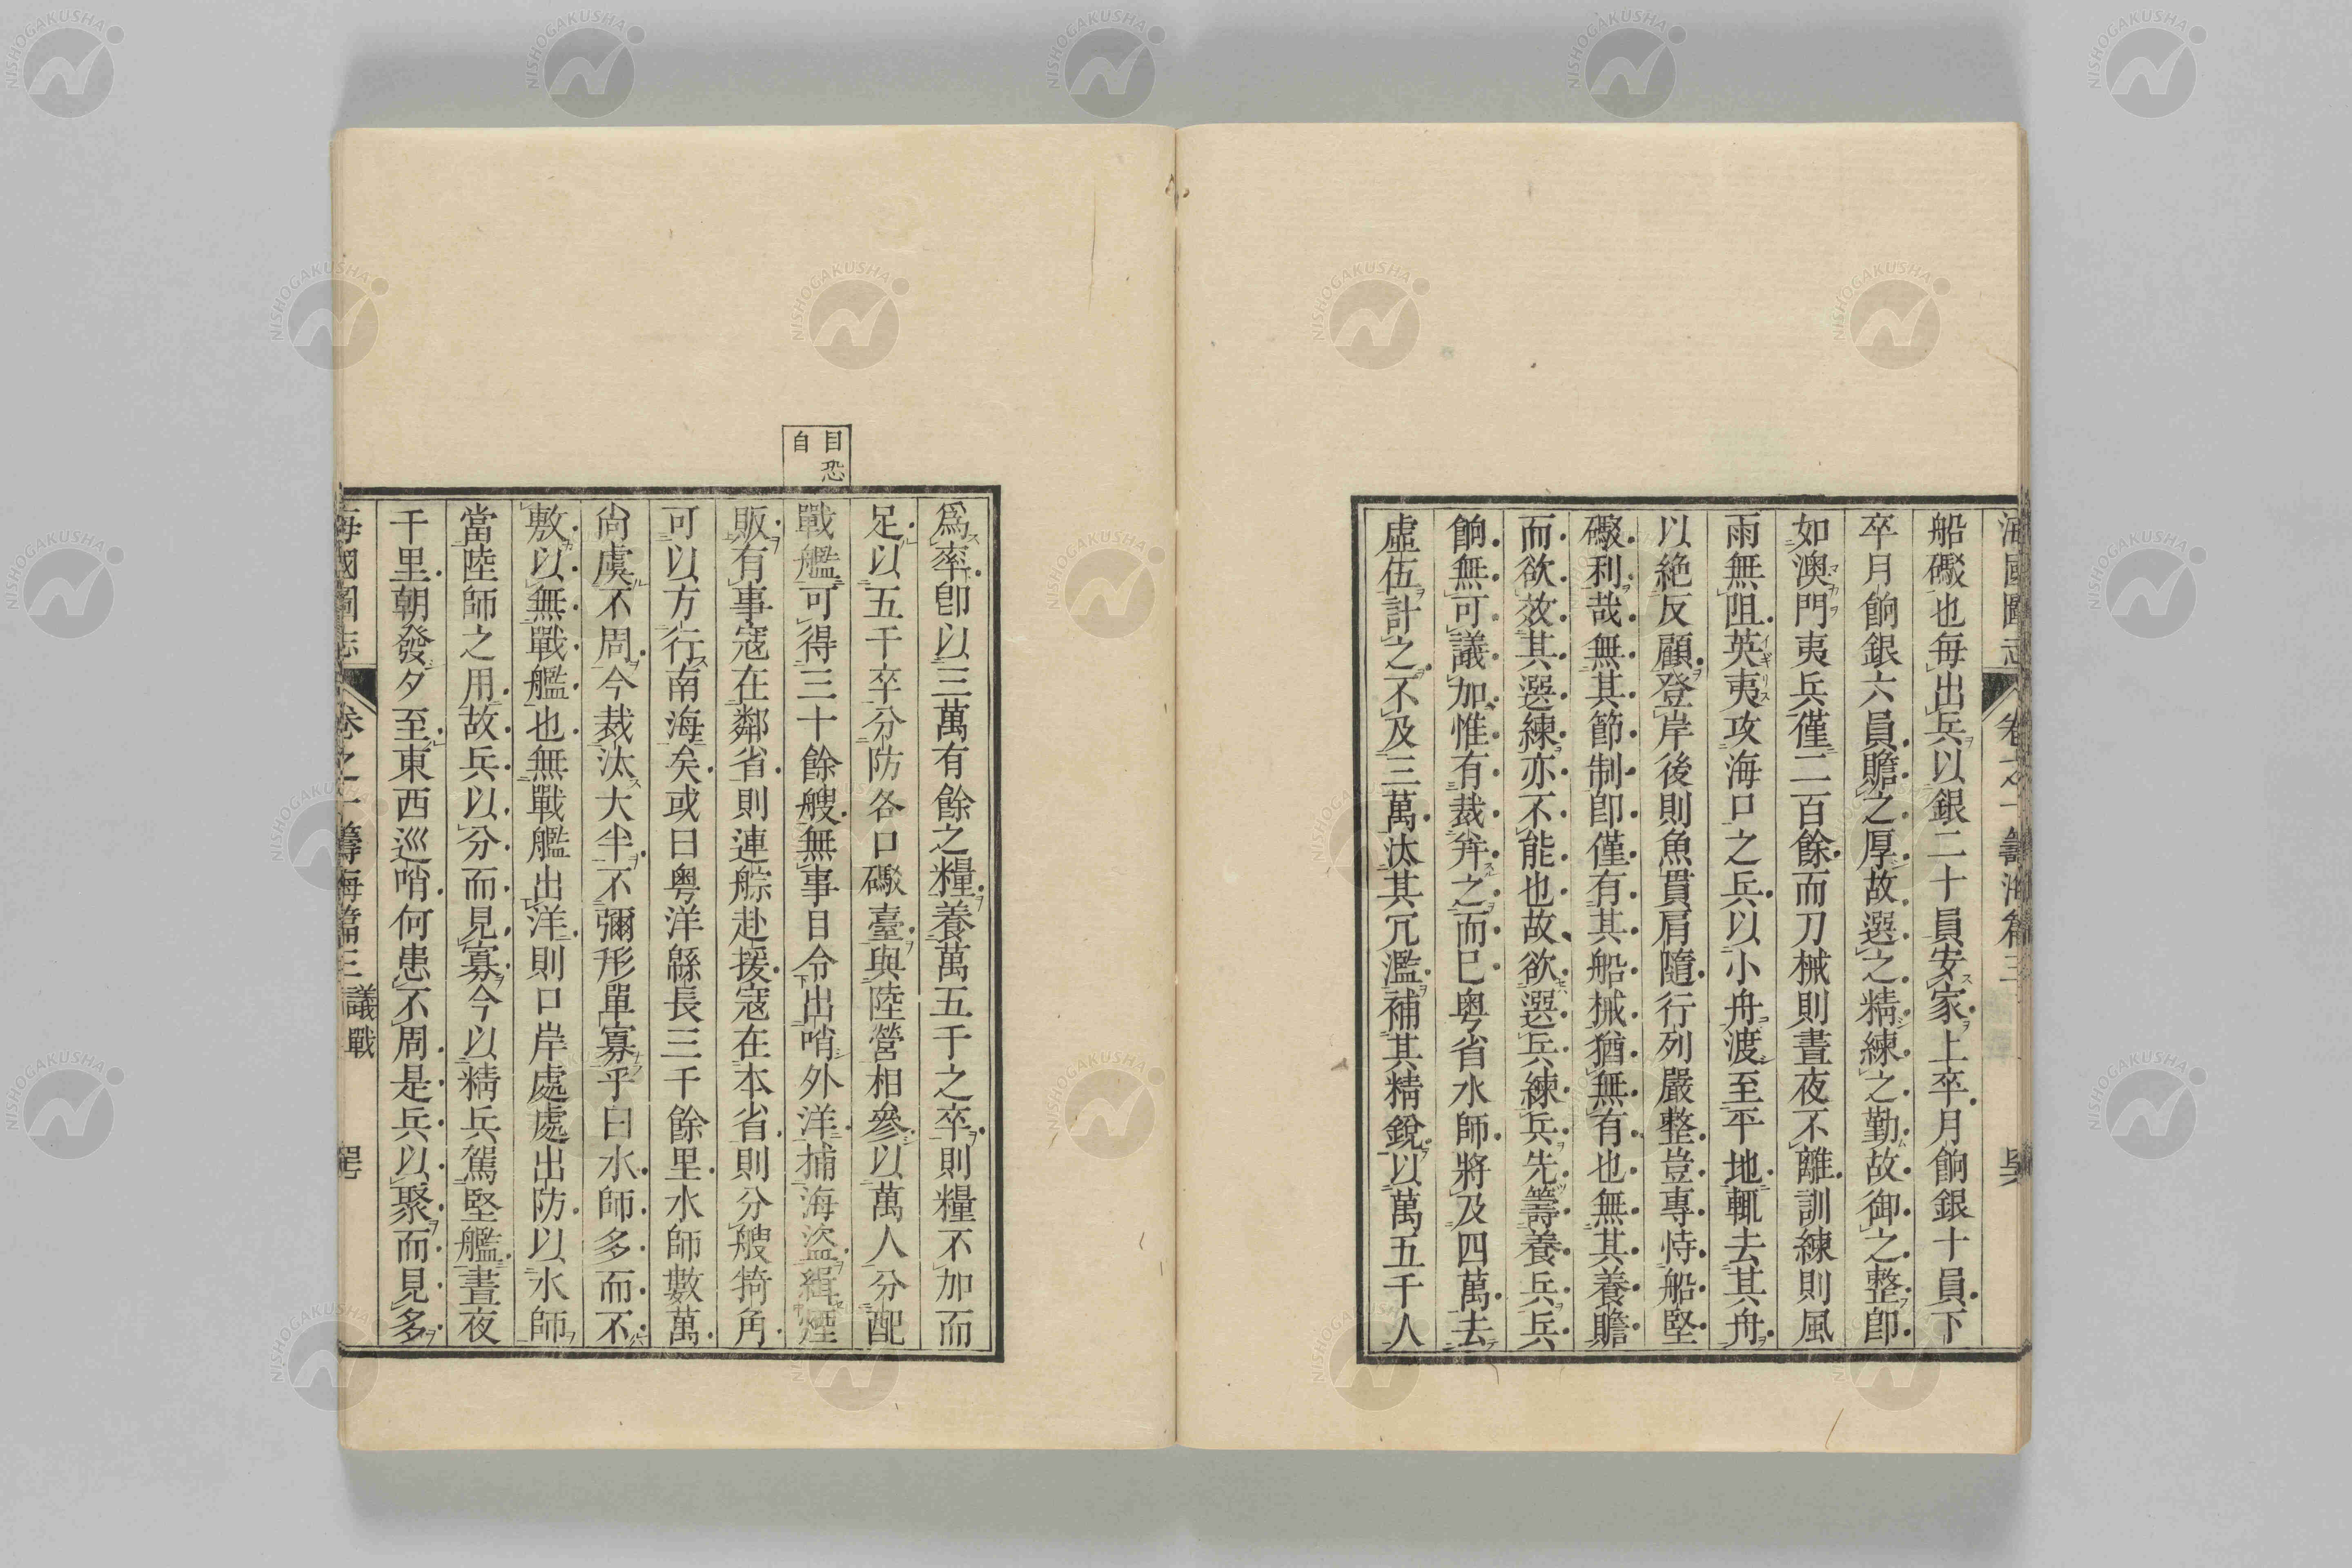 海國圖志 卷之一 籌海篇三
船礮也每出兵以銀二十員安家上卒月餉銀十員下
卒月餉銀六員贍之厚故選之精練之勤故御之整卽
如澳門夷兵僅二百餘而刀械則晝夜不離訓練則風
雨無阻英夷攻海口之兵以小舟渡至平地輒去其舟
以絶反顧登岸後則魚貫肩隨行列嚴整豈專恃船堅
礮利哉無其節制卽僅有其船械猶無有也無其養贍
而欲效其選練亦不能也故欲選兵練兵先籌養兵兵
餉無可議加惟有裁幷之而已粵省水師將及四萬去
虛伍計之不及三萬汰其冗濫補其精銳以萬五千人
目恐
自
爲率卽以三萬有餘之糧養萬五千之卒則糧不加而
足以五千卒分防各口礮臺與陸營相參以萬人分配
戰艦可得三十餘艘無事目令出哨外洋捕海盜緝煙
販有事寇在鄰省則連䑸赴援寇在本省則分艘犄角
可以方行南海矣或曰粵洋緜長三千餘里水師數萬
尙虞不周今裁汰大半不彌形單寡乎曰水師多而不
敷以無戰艦也無戰艦出洋則口岸處處出防以水師
當陸師之用故兵以分而見寡今以精兵駕堅艦晝夜
千里朝發夕至東西巡哨何患不周是兵以聚而見多
海國圖志 卷之一 籌海篇三 議戰